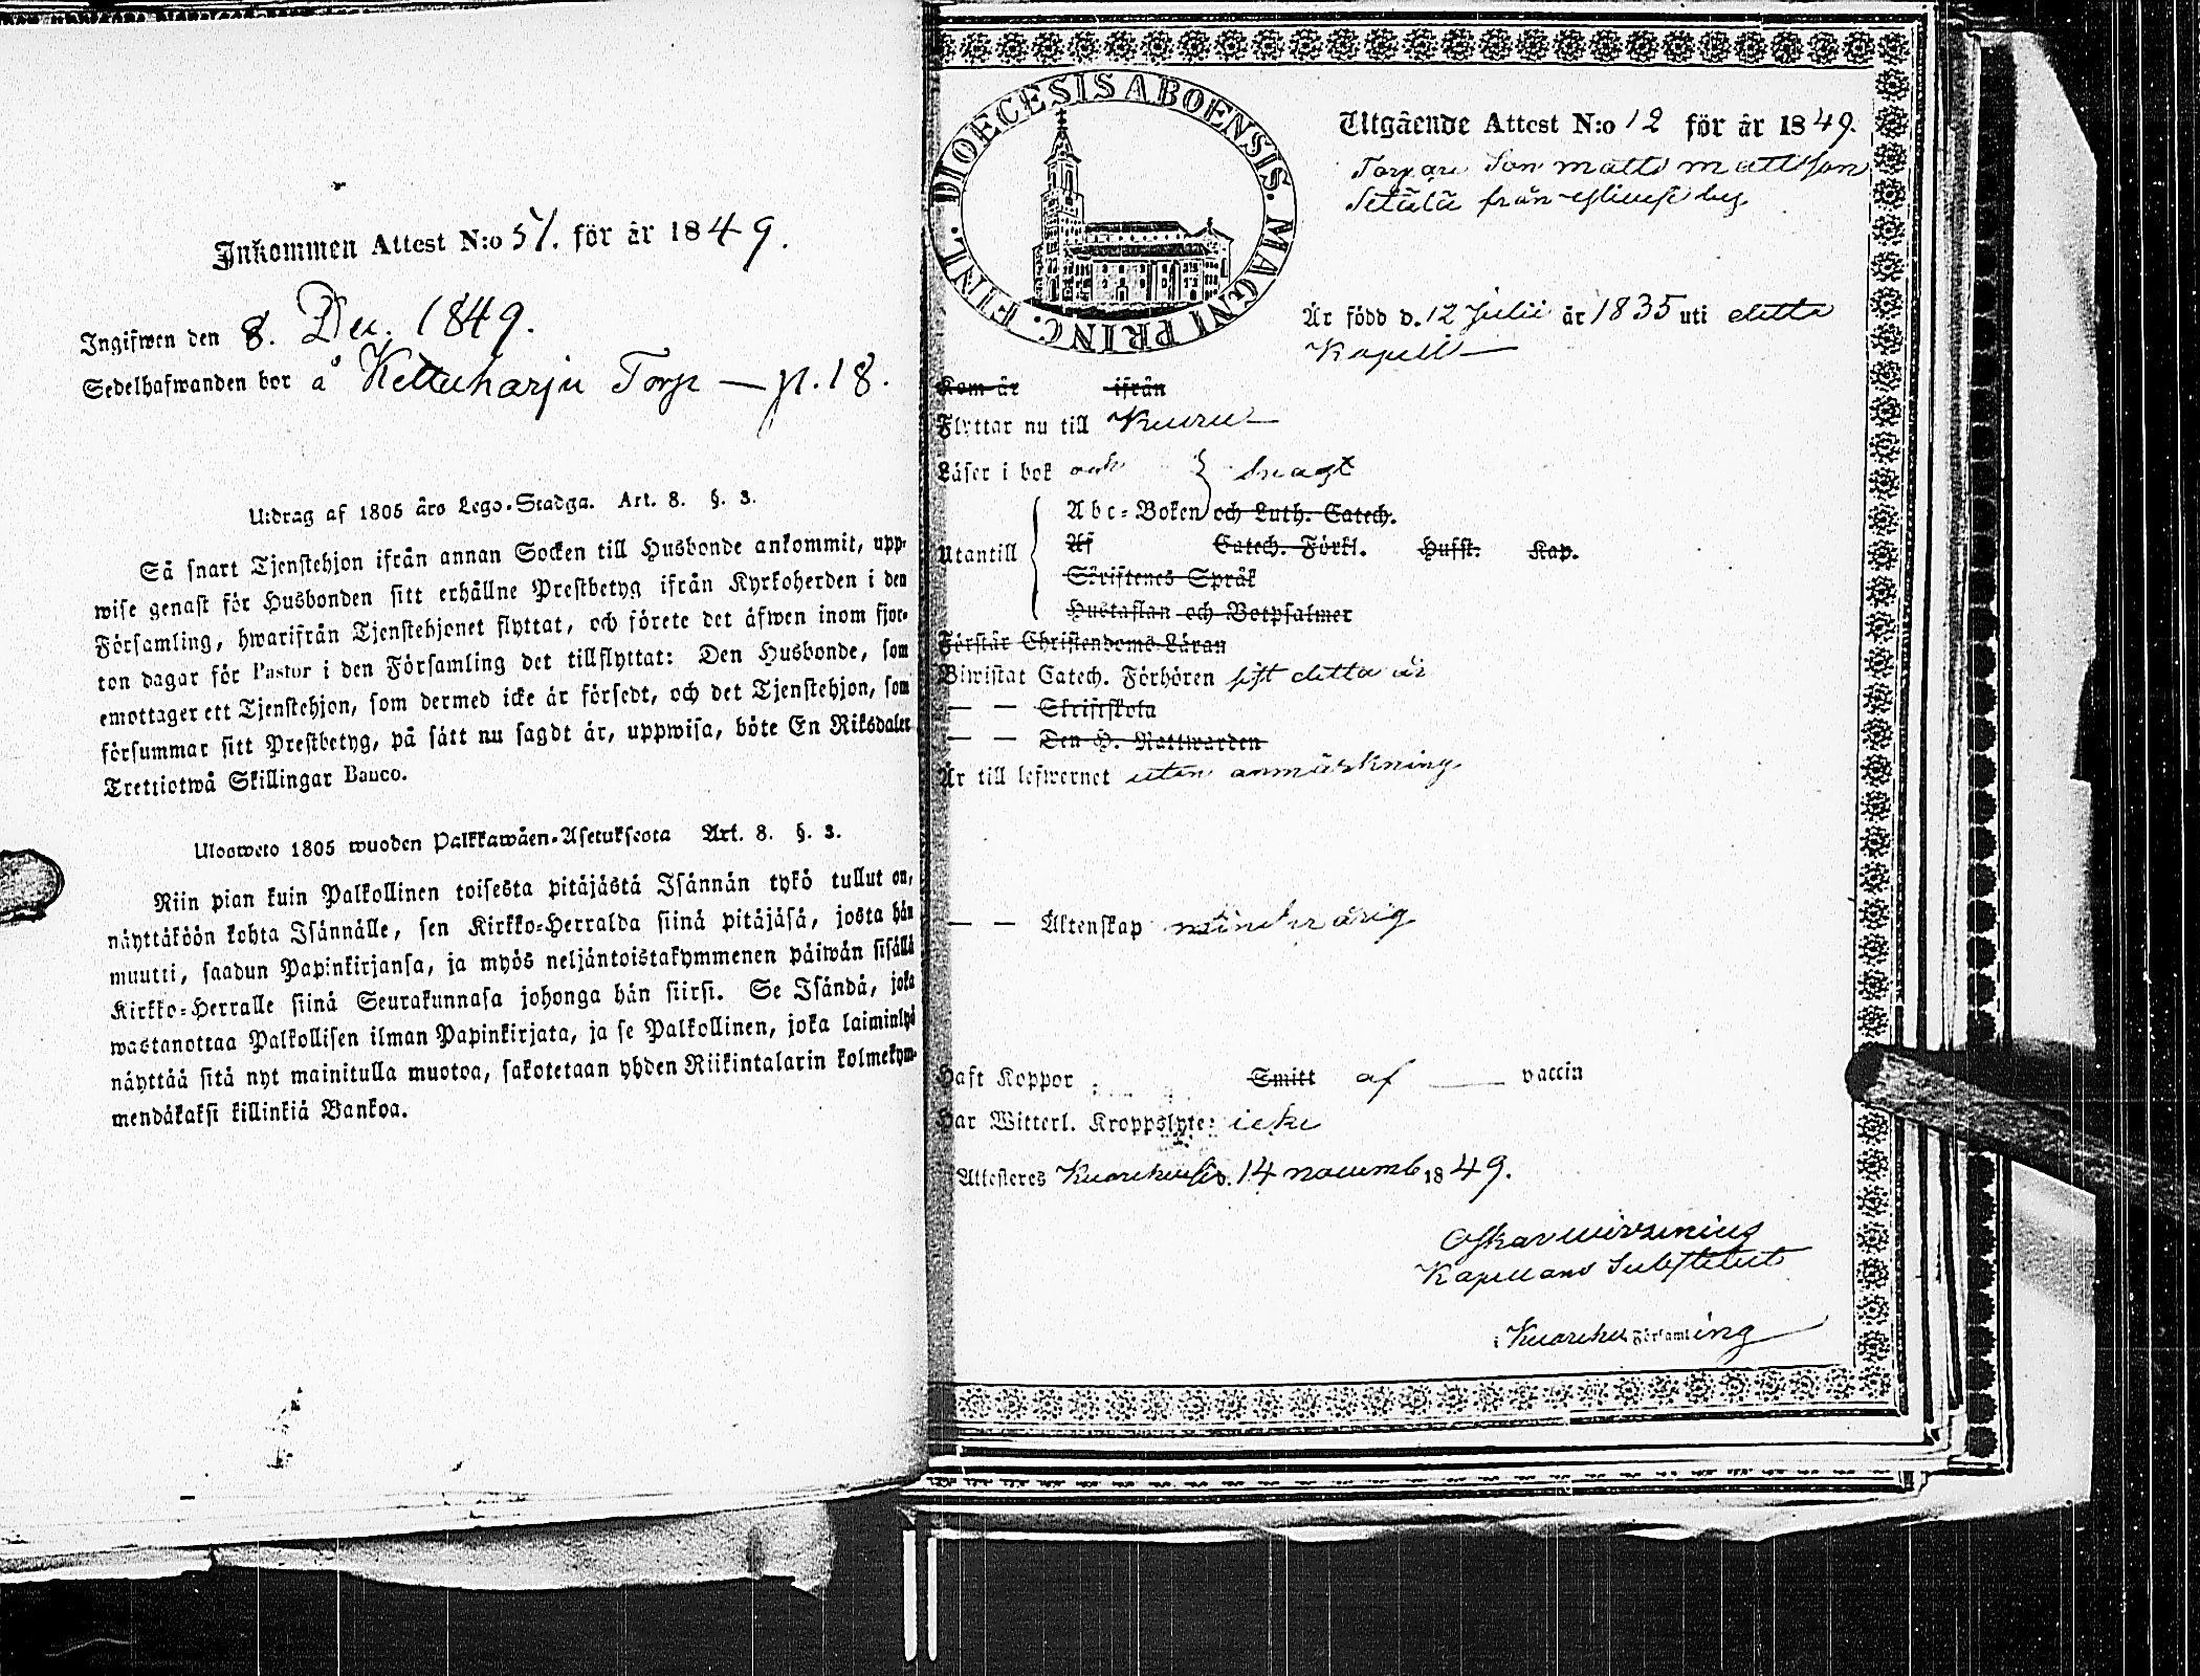 Inkommen Attest N:o 51. för år 1849.
Ingifwen den 8. Dec. 1849.
Sedelhafwanden bor å Kettuharju Torp — p. 18.
Utdrag af 1805 års Lego-Stadga. Art. 8. §. 3.
Så snart Tjenstehjon ifrån annan Socken till Husbonde ankommit, upp-
wise genast för Husbonden sitt erhållne Prestbetyg ifrån Kyrkoherden i den
Församling, hwarifrån Tjenstehjonet flyttat, och förete det äfwen inom fjor-
ton dagar för Pastor i den Församling det tillflyttat: Den Husbonde, som
emottager ett Tjenstehjon, som dermed icke är försedt, och det Tjenstehjon, som
försummar sitt Prestbetyg, på sätt nu sagdt är, uppwisa, böte En Riksdaler
Trettiotwå Skillingar Banco.
Ulosweto 1805 wuoden Palkkawäen-Asetuksesta Art. 8. §. 3.
Niin pian kuin Palkollinen toisesta pitäjästä Isännän tykö tullut on,
näyttäköön kohta Isännälle, sen Kirkko-Herralda siinä pitäjäsä, josta hän
muutti, saadun Papinkirjansa, ja myös neljäntoistakymmenen päiwän sisällä
Kirkko-Herralle siinä Seurakunnasa johonga hän siirsi. Se Isändä, joka
wastanottaa Palkollisen ilman Papinkirjata, ja se Palkollinen, joka laiminlyö
näyttää sitä nyt mainitulla muotoa, sakotetaan yhden Riikintalarin kolmekym-
mendäkaksi killinkiä Bankoa.
DIOECESIS ABOENSIS. MAGNI PRINC. FINL.
Utgående Attest N:o 12 för år 1849.
Torpare Son Matts Mattsson
Setälä från by
Är född d. 12 Julii år 1835 uti detta
Kapell
Kom år ifrån
Flyttar nu till Kuru
Läser i bok och } swagt
Utantill { Abc-Boken och Luth. Catech.
Af Catech. Förkl. Husst. Kap.
Skriftenes Språk
Hustaflan och Botpsalmer
Förstår Christendoms-Läran
Biwistat Catech. Förhören sist detta år
— — Skriftskola
— — Den H. Nattwarden
Är till lefwernet utan anmärkning
— — Äktenskap minderårig
Haft Koppor: Smitt af — vaccin
Har Witterl. Kroppslyte: icke
Attesteras d. 14 novemb 1849.
Oskar Wirzenius
Kapellans Substitut
i Församling